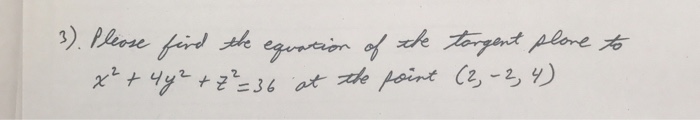 3). Please find the equation of the tangent plane to
x² + 4y² + z² = 36 at the point (2, -2, 4)